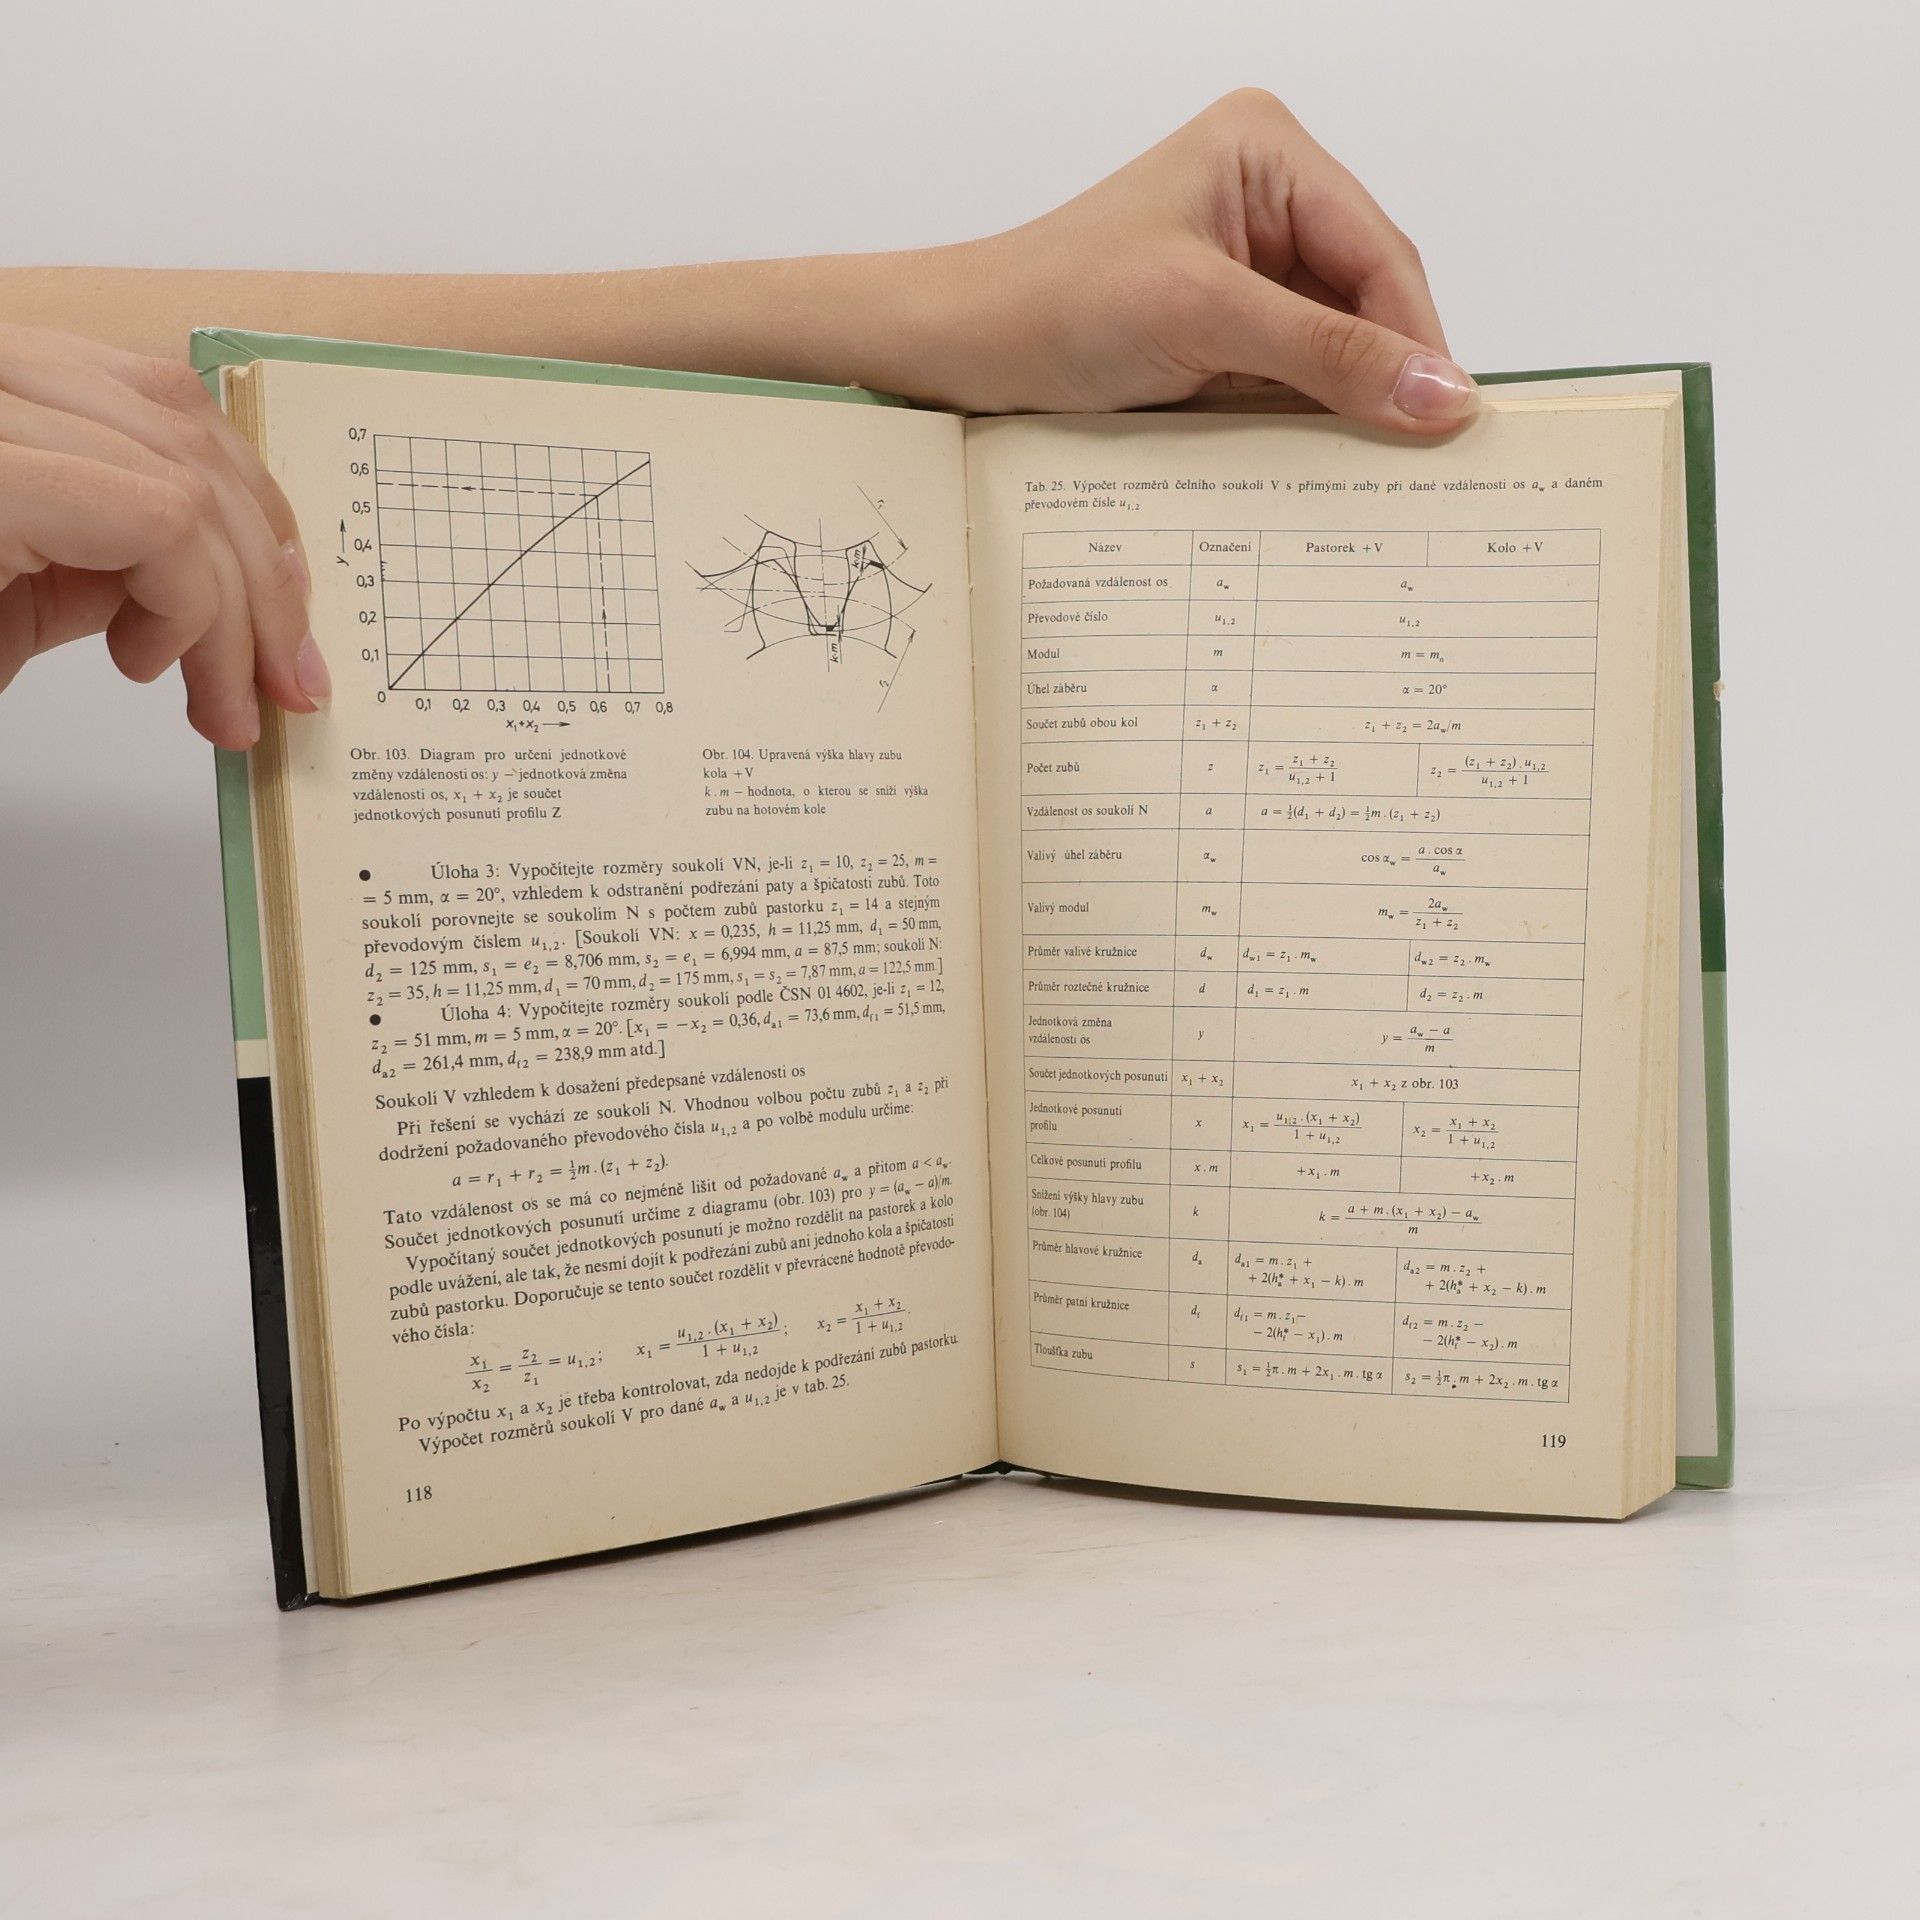 0,7
0,6
0,5
0,4
0,3
0,2
0,1
0
y
0,1 0,2 0,3 0,4 0,5 0,6 0,7 0,8
x₁+x₂
Obr. 103. Diagram pro určení jednotkové
změny vzdálenosti os: y – jednotková změna
vzdálenosti os, x₁ + x₂ je součet
jednotkových posunutí profilu Z
k·m
k·m
r₂
Obr. 104. Upravená výška hlavy zubu
kola +V
k . m – hodnota, o kterou se sníží výška
zubu na hotovém kole
● Úloha 3: Vypočítejte rozměry soukolí VN, je-li z₁ = 10, z₂ = 25, m =
= 5 mm, α = 20°, vzhledem k odstranění podřezání paty a špičatosti zubů. Toto
soukolí porovnejte se soukolím N s počtem zubů pastorku z₁ = 14 a stejným
převodovým číslem u₁,₂. [Soukolí VN: x = 0,235, h = 11,25 mm, d₁ = 50 mm,
d₂ = 125 mm, s₁ = e₂ = 8,706 mm, s₂ = e₁ = 6,994 mm, a = 87,5 mm; soukolí N:
z₂ = 35, h = 11,25 mm, d₁ = 70 mm, d₂ = 175 mm, s₁ = s₂ = 7,87 mm, a = 122,5 mm.]
● Úloha 4: Vypočítejte rozměry soukolí podle ČSN 01 4602, je-li z₁ = 12,
z₂ = 51 mm, m = 5 mm, α = 20°. [x₁ = −x₂ = 0,36, d_a1 = 73,6 mm, d_f1 = 51,5 mm,
d_a2 = 261,4 mm, d_f2 = 238,9 mm atd.]
Soukolí V vzhledem k dosažení předepsané vzdálenosti os
Při řešení se vychází ze soukolí N. Vhodnou volbou počtu zubů z₁ a z₂ při
dodržení požadovaného převodového čísla u₁,₂ a po volbě modulu určíme:
a = r₁ + r₂ = ½m . (z₁ + z₂).
Tato vzdálenost os se má co nejméně lišit od požadované a_w a přitom a < a_w.
Součet jednotkových posunutí určíme z diagramu (obr. 103) pro y = (a_w − a)/m.
Vypočítaný součet jednotkových posunutí je možno rozdělit na pastorek a kolo
podle uvážení, ale tak, že nesmí dojít k podřezání zubů ani jednoho kola a špičatosti
zubů pastorku. Doporučuje se tento součet rozdělit v převrácené hodnotě převodo-
vého čísla:
x₁/x₂ = z₂/z₁ = u₁,₂; x₁ = u₁,₂ . (x₁ + x₂)/(1 + u₁,₂); x₂ = (x₁ + x₂)/(1 + u₁,₂).
Po výpočtu x₁ a x₂ je třeba kontrolovat, zda nedojde k podřezání zubů pastorku.
Výpočet rozměrů soukolí V pro dané a_w a u₁,₂ je v tab. 25.
118
Tab. 25. Výpočet rozměrů čelního soukolí V s přímými zuby při dané vzdálenosti os a_w a daném
převodovém čísle u₁,₂
Název Označení Pastorek +V Kolo +V
Požadovaná vzdálenost os a_w a_w
Převodové číslo u₁,₂ u₁,₂
Modul m m = m_n
Úhel záběru α α = 20°
Součet zubů obou kol z₁ + z₂ z₁ + z₂ = 2a_w/m
Počet zubů z z₁ = (z₁ + z₂)/(u₁,₂ + 1) z₂ = (z₁ + z₂) . u₁,₂/(u₁,₂ + 1)
Vzdálenost os soukolí N a a = ½(d₁ + d₂) = ½m . (z₁ + z₂)
Valivý úhel záběru α_w cos α_w = a . cos α/a_w
Valivý modul m_w m_w = 2a_w/(z₁ + z₂)
Průměr valivé kružnice d_w d_w1 = z₁ . m_w d_w2 = z₂ . m_w
Průměr roztečné kružnice d d₁ = z₁ . m d₂ = z₂ . m
Jednotková změna
vzdálenosti os y y = (a_w − a)/m
Součet jednotkových posunutí x₁ + x₂ x₁ + x₂ z obr. 103
Jednotkové posunutí
profilu x x₁ = u₁,₂ . (x₁ + x₂)/(1 + u₁,₂) x₂ = (x₁ + x₂)/(1 + u₁,₂)
Celkové posunutí profilu x . m +x₁ . m +x₂ . m
Snížení výšky hlavy zubu
(obr. 104) k k = (a + m . (x₁ + x₂) − a_w)/m
Průměr hlavové kružnice d_a d_a1 = m . z₁ + d_a2 = m . z₂ +
+ 2(h*_a + x₁ − k) . m + 2(h*_a + x₂ − k) . m
Průměr patní kružnice d_f d_f1 = m . z₁ − d_f2 = m . z₂ −
− 2(h*_f − x₁) . m − 2(h*_f − x₂) . m
Tloušťka zubu s s₁ = ½π . m + 2x₁ . m . tg α s₂ = ½π . m + 2x₂ . m . tg α
119